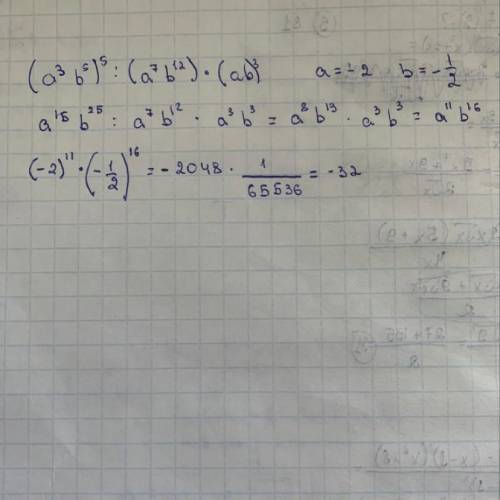 (a³ b⁵)⁵ : (a⁷ b¹²) · (ab)³ a = -2 b = -1/2
a¹⁵ b²⁵ : a⁷ b¹² · a³ b³ = a⁸ b¹³ · a³ b³ = a¹¹ b¹⁶
(-2)¹¹ · (-1/2)¹⁶ = - 2048 · 1/65536 = -32